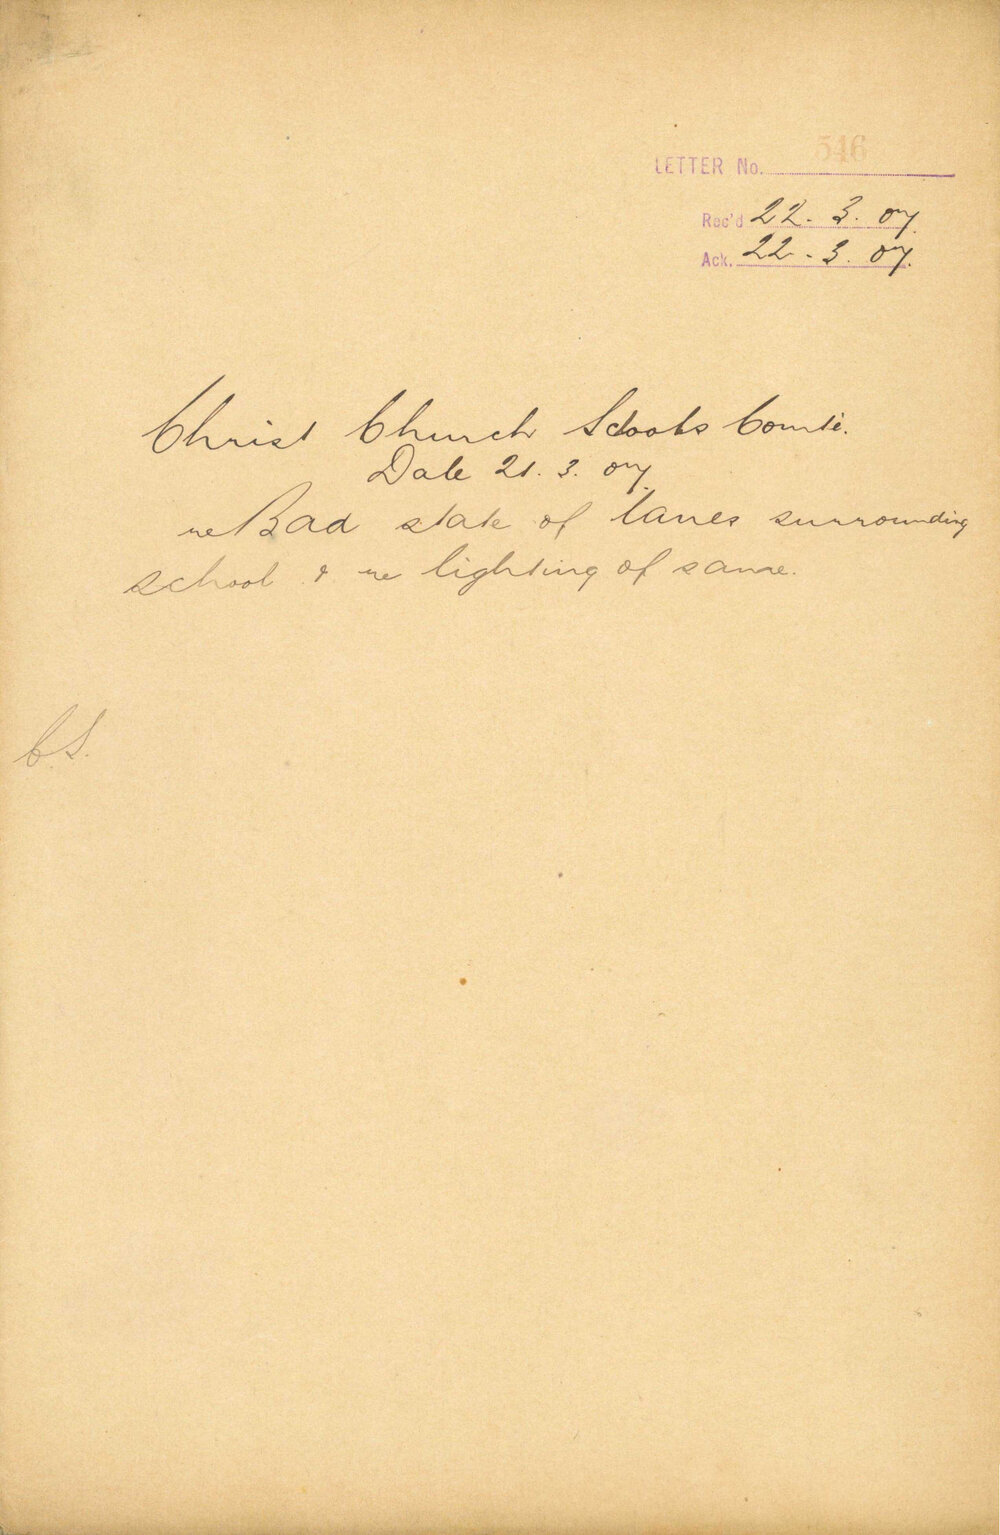 LETTER No. 546
Rec'd 22.3.07.
Ack. 22.3.07.
Christ Church Schools Comte.
Date 21.3.07.
re Bad state of lanes surrounding
school & re lighting of same.
C.S.